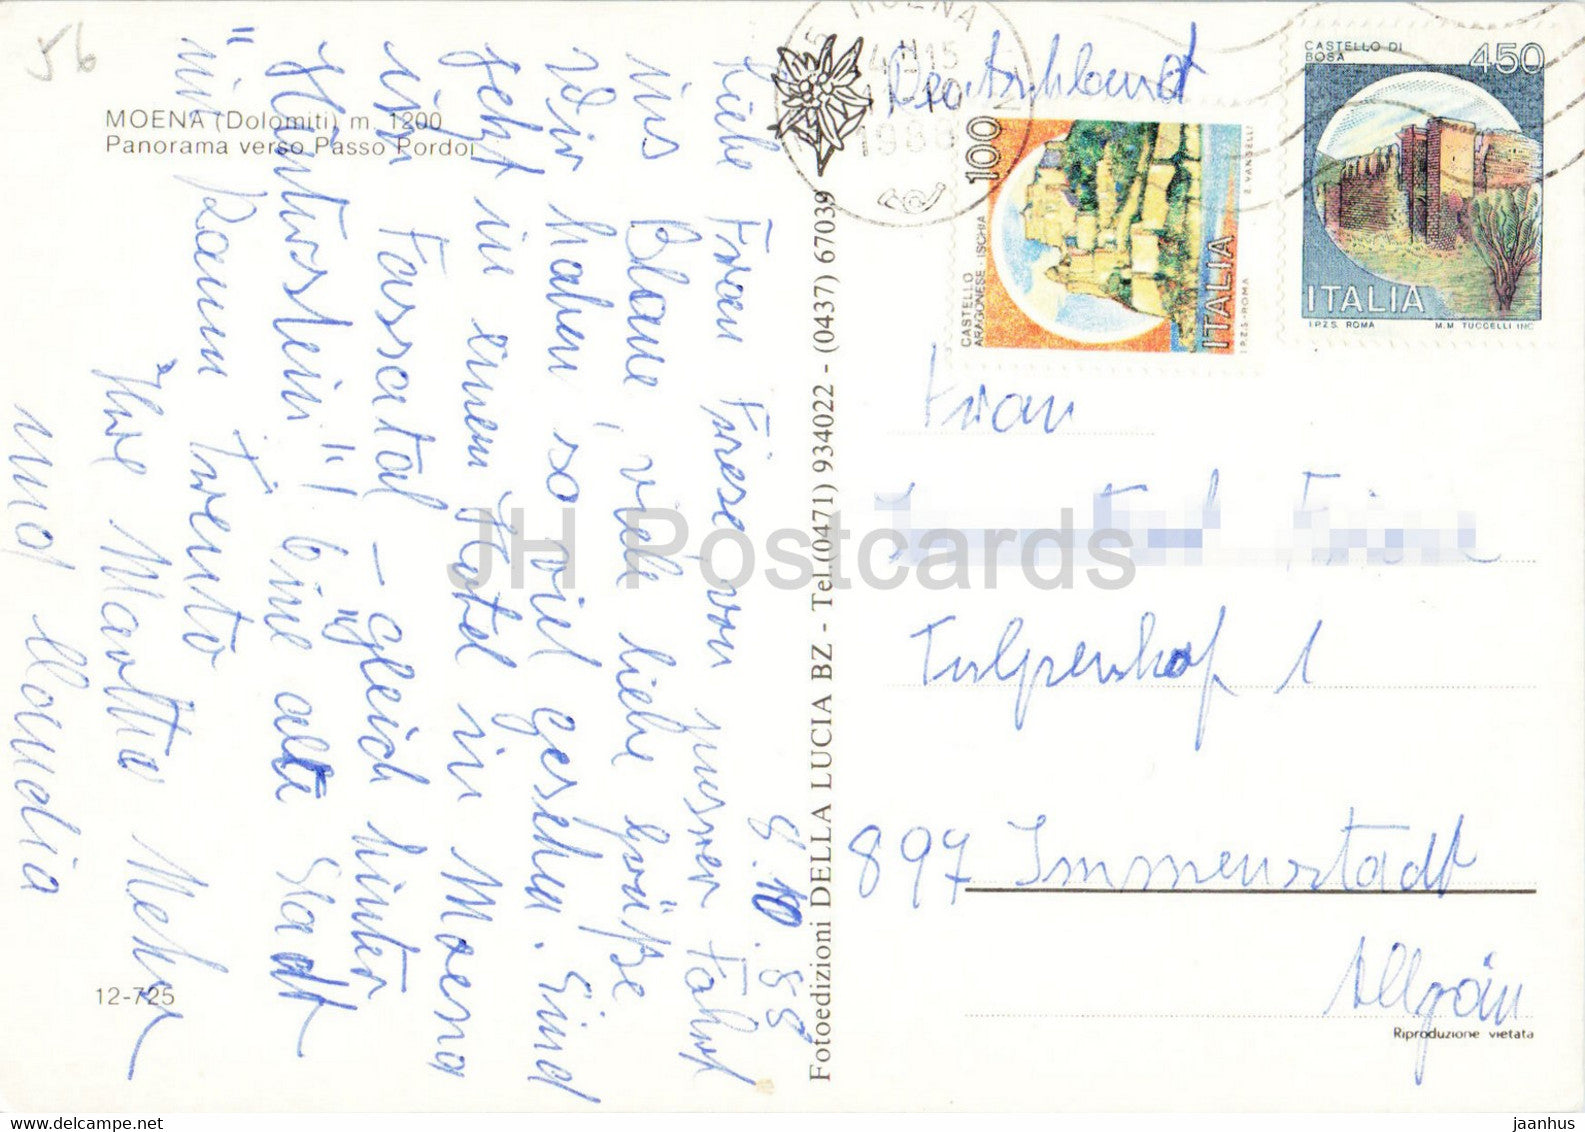 56
MOENA (Dolomiti) m. 1200
Panorama verso Passo Pordoi
8.10.88
Liebe Frau Friesa, von unserer Fahrt
ins Blaue, viele liebe Grüße
Wir haben so viel gesehen. Sind
jetzt in einem Hotel in Moena
im Fassatal – gleich hinter
" bine alte Stadt
im Raum Trento
Ihre Martha
und Claudia
12-725
Fotoedizioni DELLA LUCIA BZ - Tel. (0471) 934022 - (0437) 67039
MOENA
15
10
Deutschland
100
CASTELLO
ARAGONESE - ISCHIA
ITALIA
I.P.Z.S. - ROMA
E. VANGELLI
CASTELLO DI
BOSA
450
ITALIA
I.P.Z.S. ROMA
M.M TUCCELLI INC.
Frau
Tulpenhof 1
897 Immenstadt
Allgäu
Riproduzione vietata
JH Postcards
jaanhus / HipPostcard.com